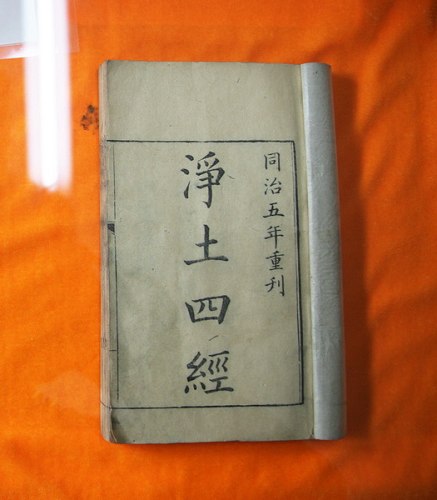 同治五年重刋
淨土四經